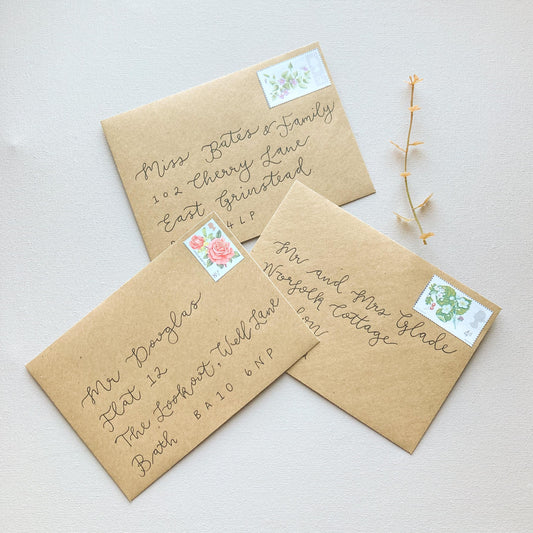 Miss Bates & Family
102 Cherry Lane
East Grinstead
4LP
Mr and Mrs Glade
Norfolk Cottage
Mr Douglas
Flat 12
The Lookout, Well Lane
Bath BA10 6NP